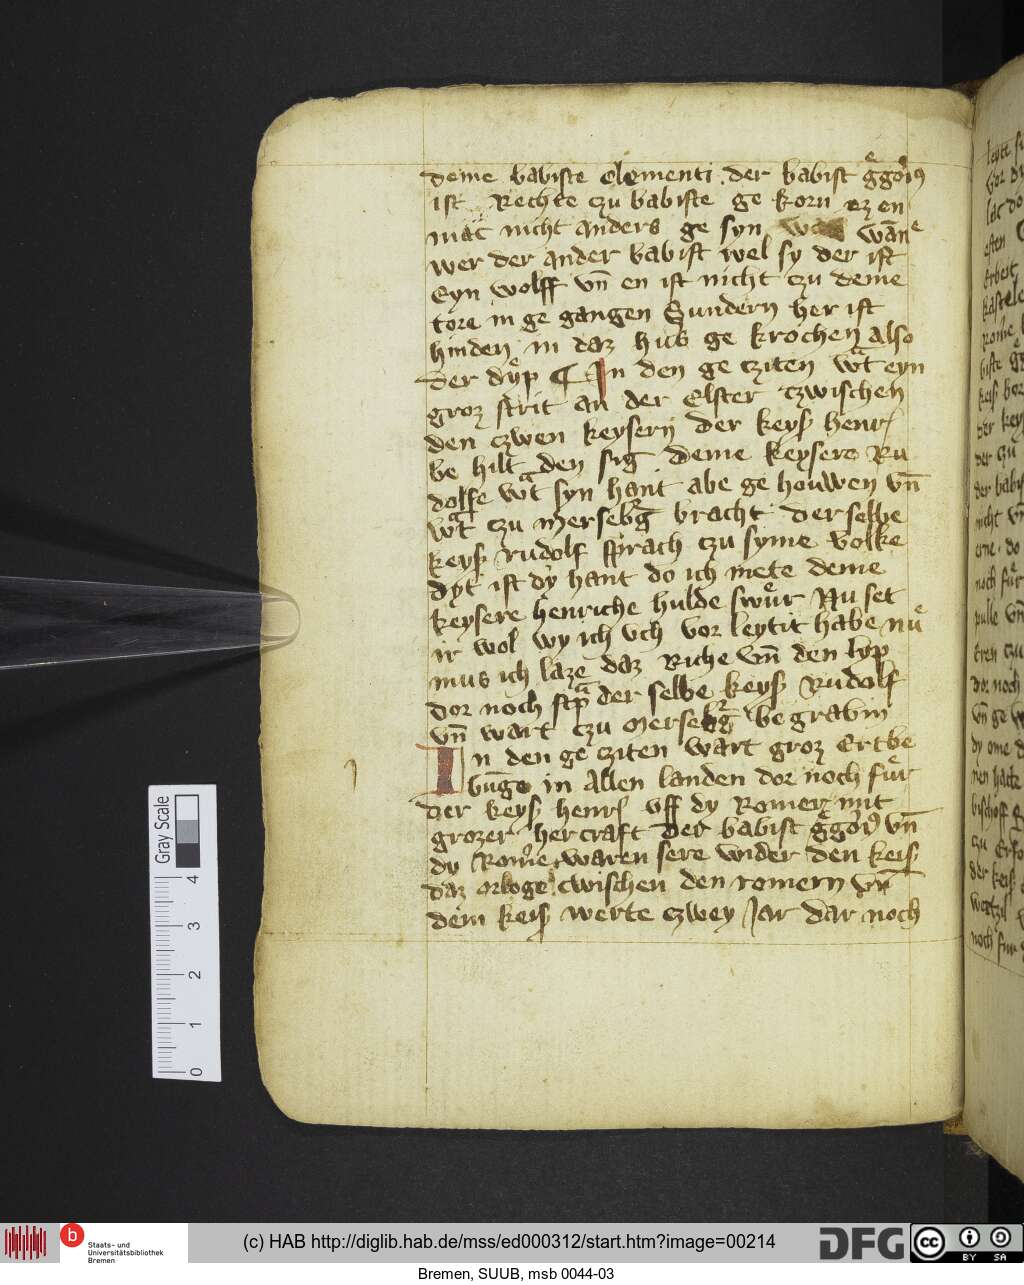 deme babiste clementi der babist gͤgoriꝰ
ist Rechte czu babiste ge korn ez en
mac nicht anders ge syn wanͤ
wer der ander babist wel sy der ist
Eyn wolff vn̄ en ist nicht czu deme
tore in ge gangen Sundern her ist
hinden in daz hus ge krochen also
der dyͤp ¶ In den ge cziten wͣt eyn
groz strit an der Elster czwischen
den czwen keysern der keyẜ henr
be hilt den sig deme keysere Ru
dolfe wͣt syn hant abe ge houwen vn̄
wͣt czu mersebḡ bracht der selbe
keyẜ rudolf sprach czu syme volke
dyt ist dy hant do ich mete deme
keysere henriche hulde swuͤr Nu set
ir wol wy ich vch vor leytit habe nuͤ
mus ich laze daz Riche vn̄ den lyp
dor noch stpͣ der selbe keyẜ Rudolf
vn̄ wart czu mersebḡ be grabin
In den ge cziten wart groz Ertbe
būge in allen landen dor noch fuͤr
der keyẜ henr vff dy Romer mit
grozer hercraft Der babist gͤgoriꝰ vn̄
dy Romͤe waren sere wider den keiẜ
daz orloge cwischen den romern vn̄
dem keiẜ werte czwey Jar dar noch
Gray Scale
4
3
2
1
0
b
Staats- und
Universitätsbibliothek
Bremen
(c) HAB http://diglib.hab.de/mss/ed000312/start.htm?image=00214
DFG
cc BY SA
Bremen, SUUB, msb 0044-03